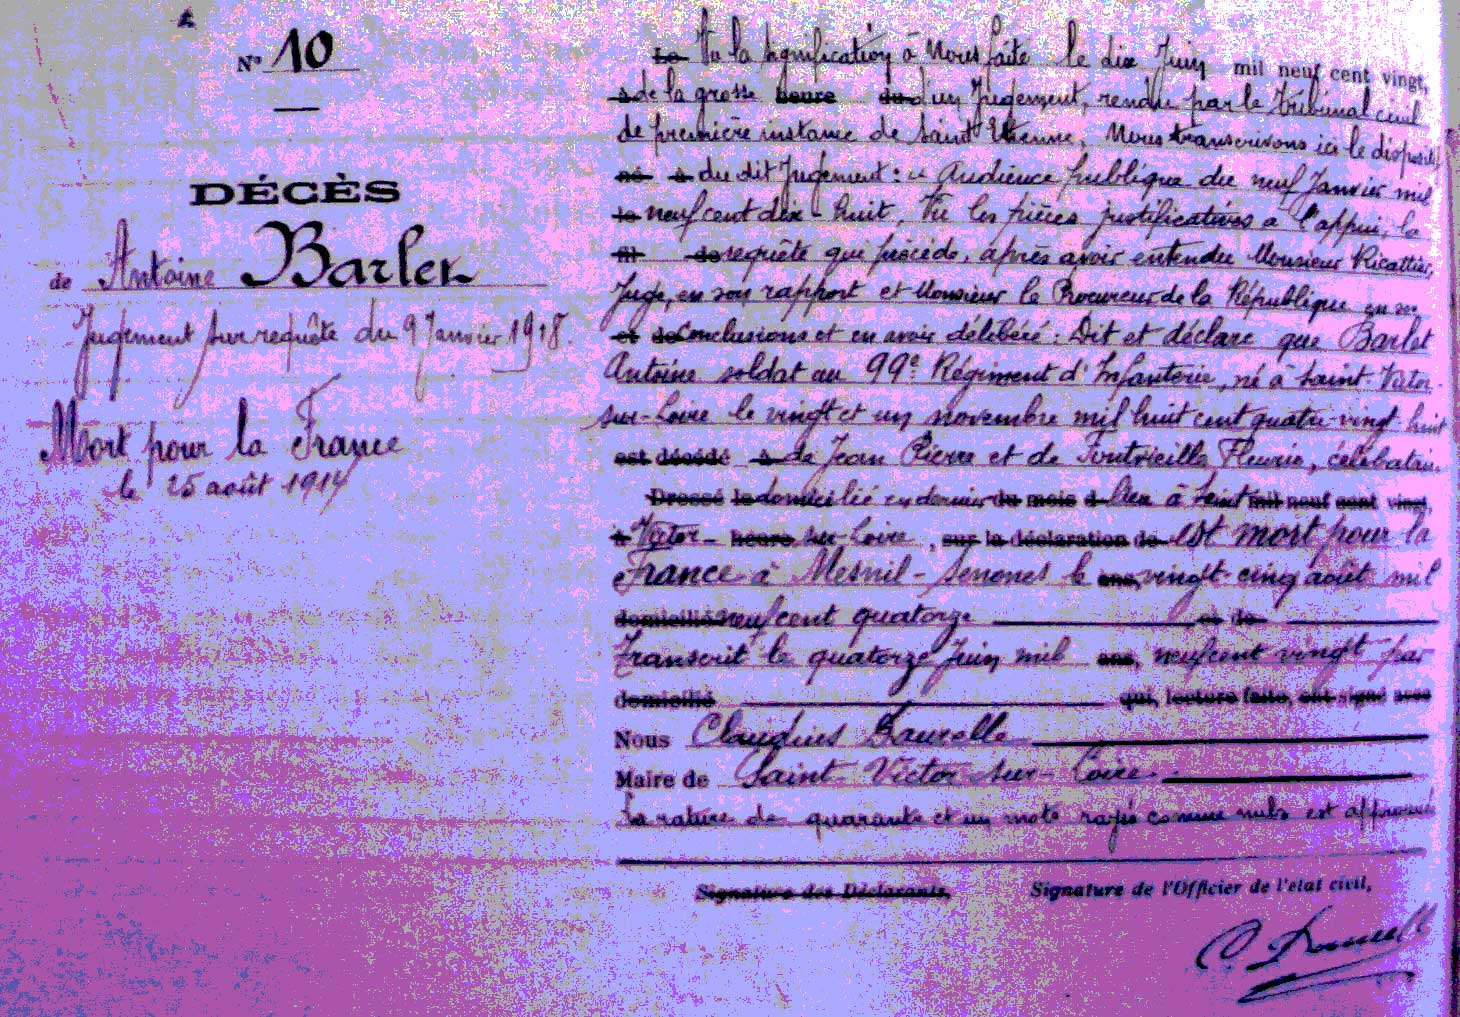 N° 10
DÉCÈS
de Antoine Barlet
Jugement sur requête du 9 Janvier 1918.
Mort pour la France
le 25 août 1914
Le Vu la signification à Nous faite le dix Juin mil neuf cent vingt,
à de la grosse heure du d'un Jugement, rendu par le tribunal civil
de première instance de Saint Etienne, Nous transcrivons ici le dispositif
né à du dit Jugement : « Audience publique du neuf Janvier mil
le neuf cent dix-huit, Vu les pièces justificatives a l'appui, la
fil de requête qui précède, après avoir entendu Monsieur Ricattier,
Juge, en son rapport et Monsieur le Procureur de la République en ses
et de Conclusions et en avoir délibéré : Dit et déclare que Barlet
Antoine soldat au 99e Régiment d'Infanterie, né à Saint-Victor-
sur-Loire le vingt et un novembre mil huit cent quatre-vingt-huit
est décédé à de Jean Pierre et de Fontvieille Fleurie, célibataire,
Dressé le domicilié en dernier du mois d lieu à Saint mil neuf cent vingt,
à Victor- heure sur-Loire, sur la déclaration de est mort pour la
France à Mesnil-Senones le ans, vingt-cinq août mil
domicilié neuf cent quatorze et de
Transcrit le quatorze Juin mil ans, neuf cent vingt par
domicilié qui, lecture faite, ont signé avec
Nous Claudius
Maire de Saint-Victor-sur-Loire.
La rature de quarante et un mots rayés comme nuls est approuvée
Signature des Déclarants, Signature de l'Officier de l'état civil,